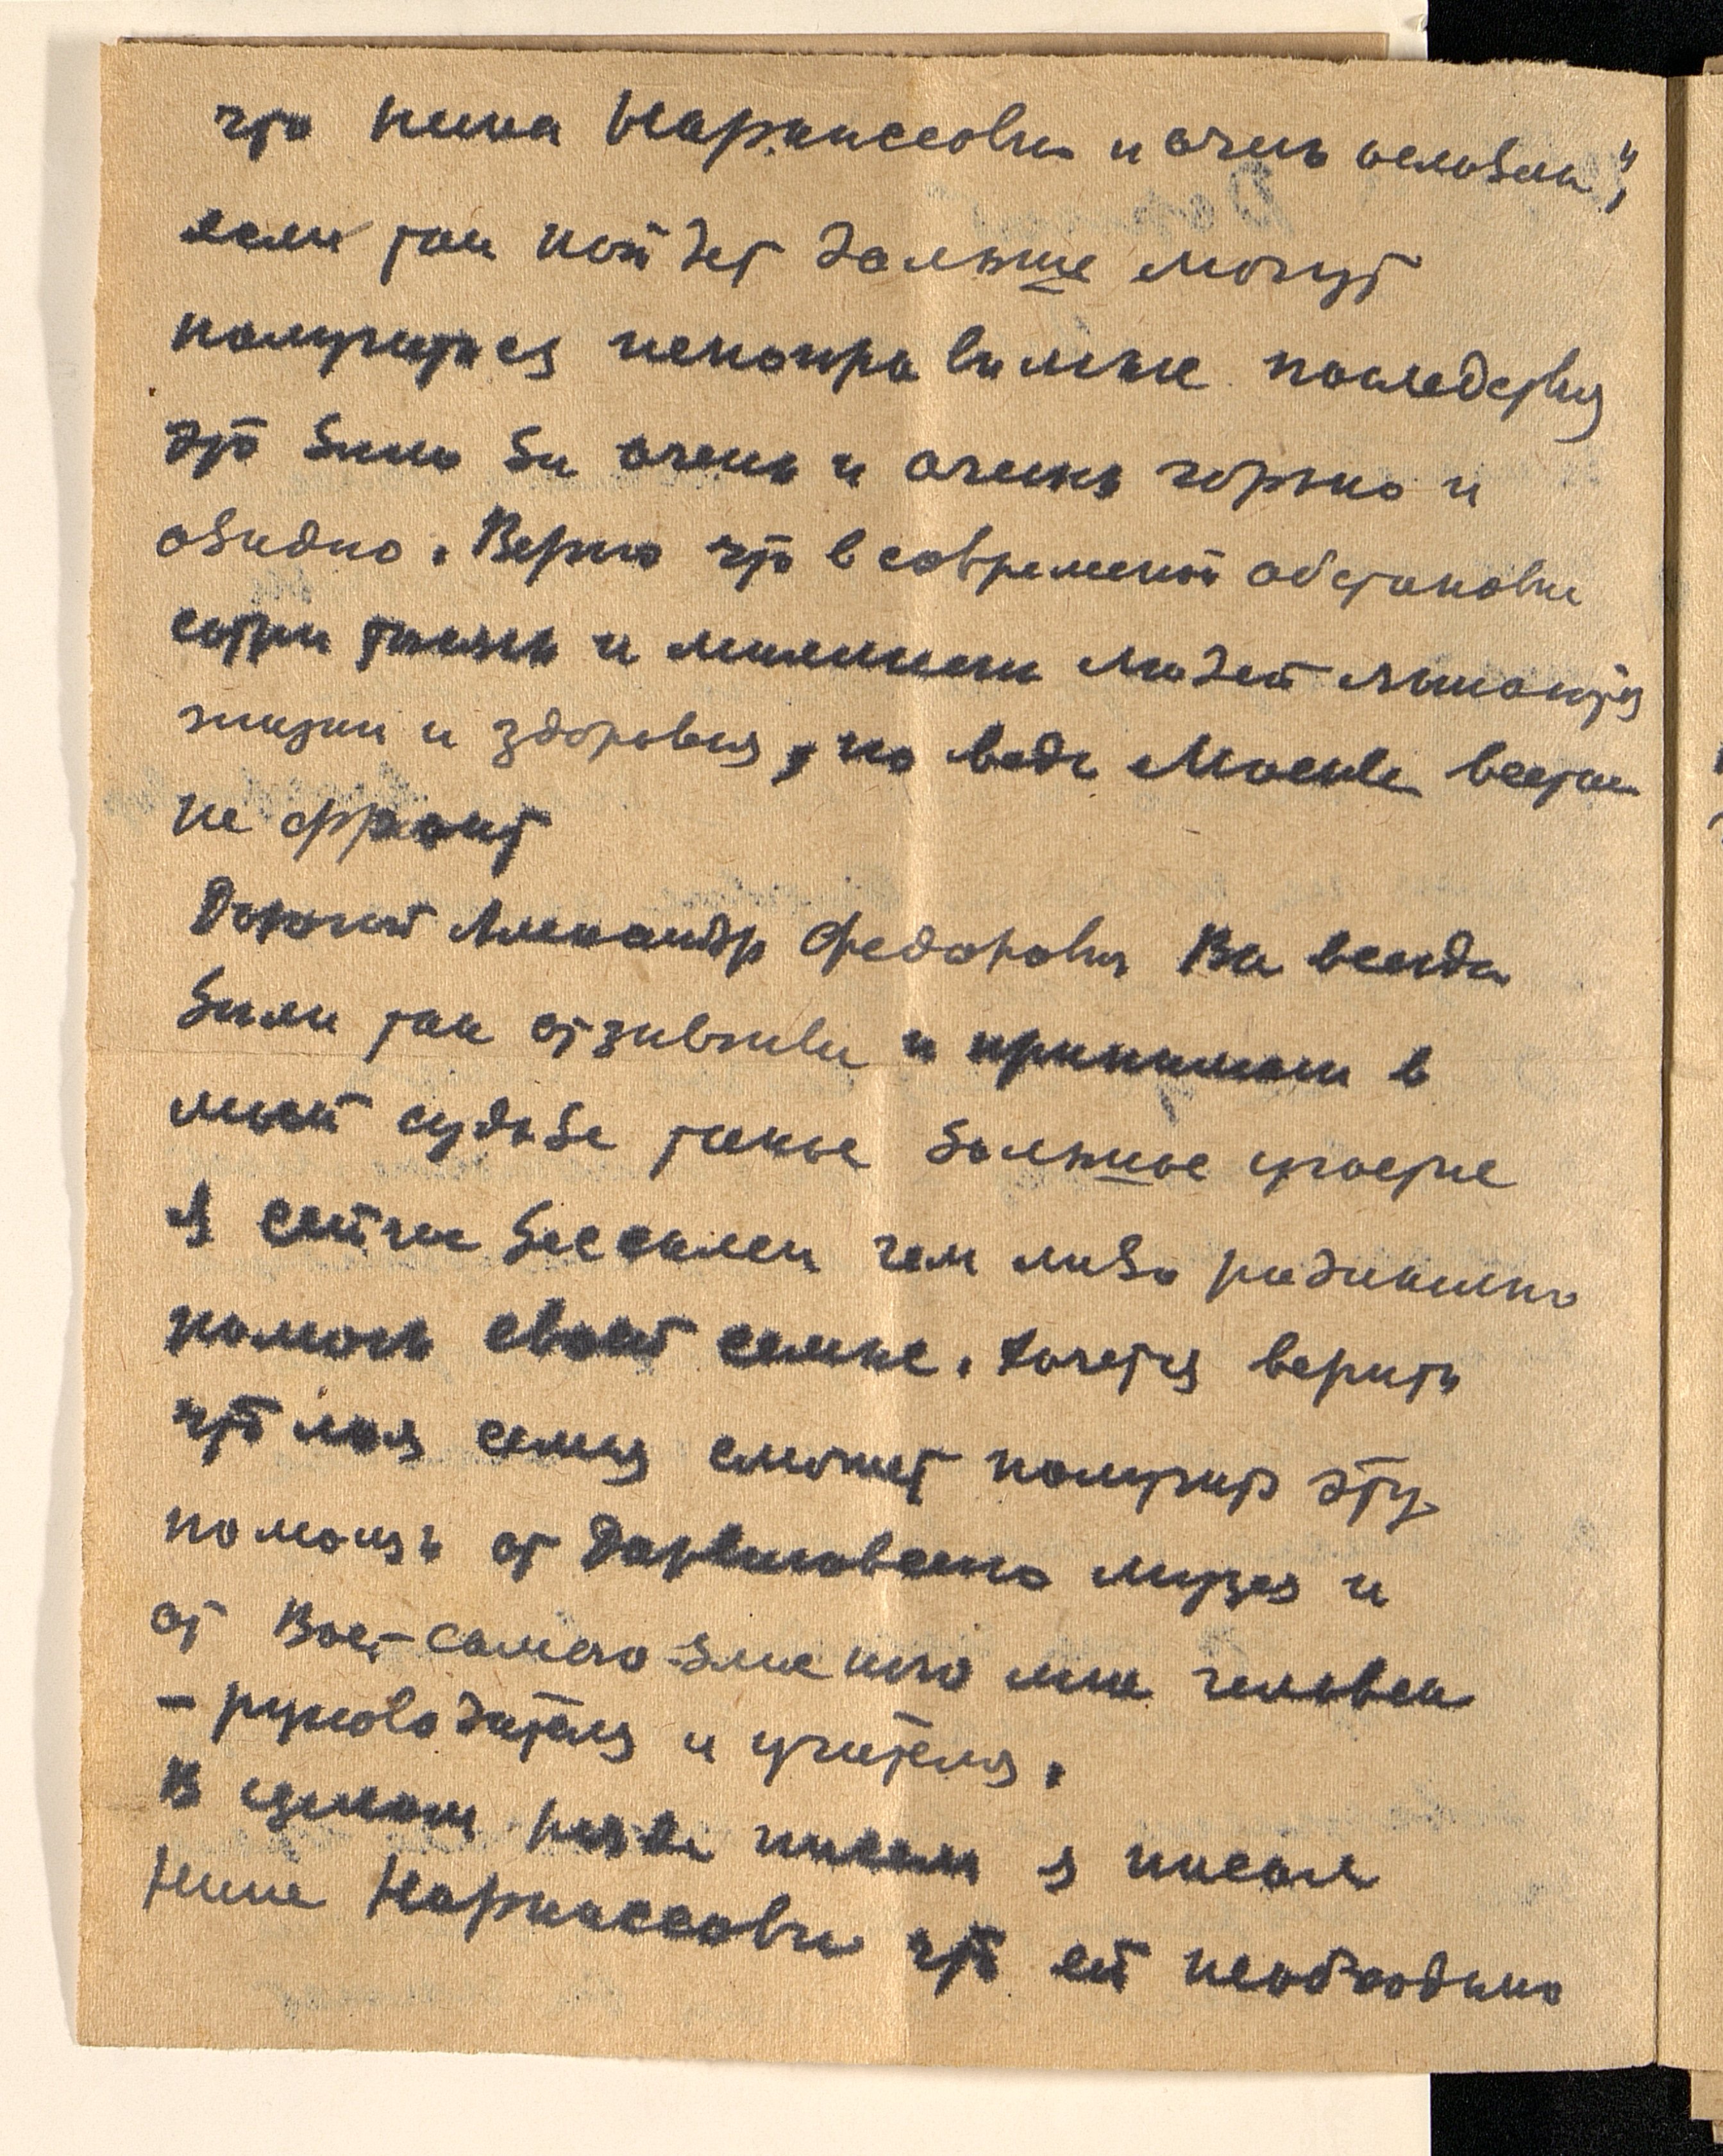 что Нина Нарциссовна и очень ослабла",
если так пойдет дальше могут
получиться непоправимые последствия
это было бы очень и очень горько и
обидно. Верно что в современной обстановке
сотни тысяч и миллионы людей лишаются
жизни и здоровья, но ведь Москве все так
не фронт
Дорогой Александр Федорович Вы всегда
были так отзывчивы и принимали в
моей судьбе такое большое участие
Я сейчас бессилен чем либо радикально
помочь своей семье. Хочется верить
что моя семья сможет получить эту
помощь от Дарвиновского музея и
от Вас – самого близкого мне человека
– руководителя и учителя.
В целом ряде писем я писал
Нине Нарциссовне что ей необходимо